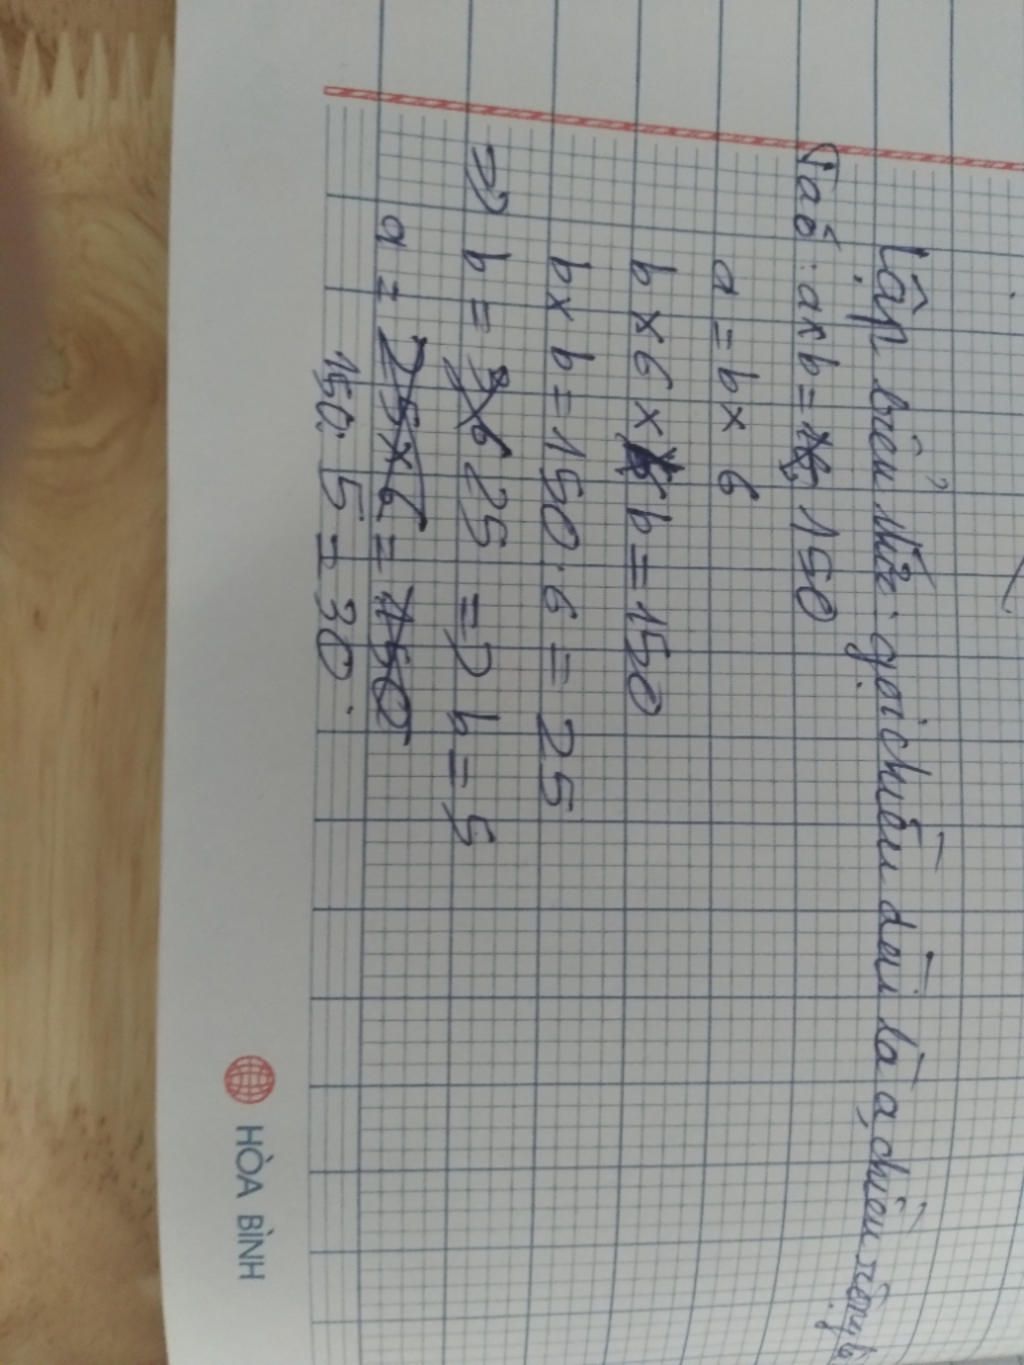 Lập biểu thức: gọi chiều dài là a, chiều rộng b
Ta có: a x b = 150
a = b x 6
b x 6 x b = 150
b x b = 150 : 6 = 25
=> b = 25 => b = 5
a = 25 x 6 = 150
150 : 5 = 30.
HÒA BÌNH